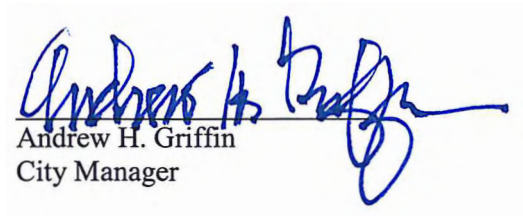 Andrew H. Griffin
Andrew H. Griffin
City Manager